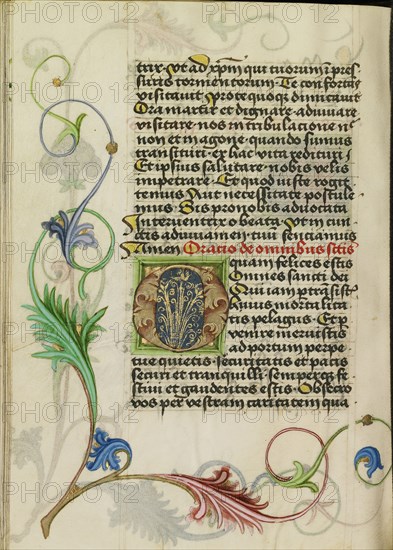 trix · Vt ad xp̄m qui tuorum pres
suris tormentorum · Te confortās
visitavit · Pro te quoqȝ dimicavit
Ora martir et dignare · adiuvare
visitare · nos in tribulacione n̄
non et in agone · quando sumus
transituri · ex hac vita redituri ·
Et ipsius salutare · nobis velis
impetrare · Et quod iuste rogi
temus · Aut necessitate postule
mus · Sis pro nobis advocata
Interventrix o beata · Vt in cun
ctis adiuuamen · tuū senciamus
Amen Oracio de omnibus sc̄tis
O quam felices estis
omnes sancti dei
Qui iam p̄transist
huius mortalita
tis pelagus · Et p
venire meruistis
ad portum perpe
tue quietis · securitatis et pacis
securi et tranquilli · semperqȝ fe
stivi et gaudentes estis · Obsecro
vos per vestram caritatem qua